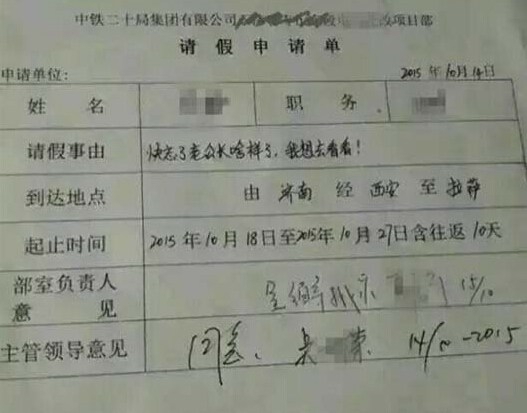 中铁二十局集团有限公司 项目部
请假申请单
申请单位: 2015年10月14日
姓名 职务
请假事由 快忘了老公长啥样了,我想去看看!
到达地点 由 济南 经 西安 至 拉萨
起止时间 2015年10月18日至2015年10月27日含往返10天
部室负责人 15/10
意见
主管领导意见 同意、 14/10-2015